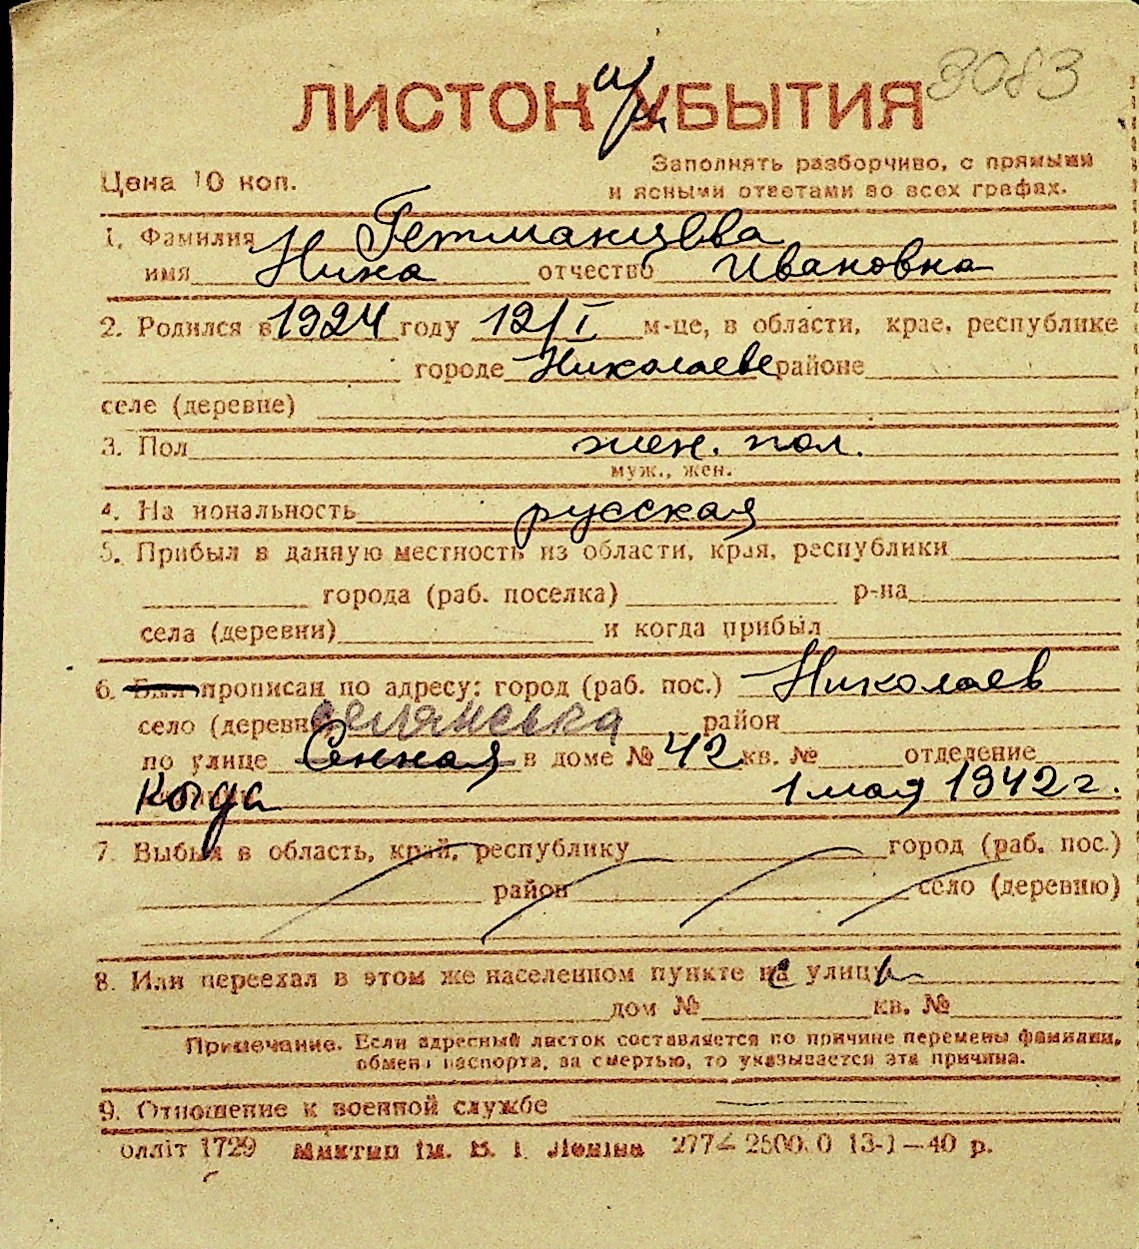 3083
ЛИСТОК УБЫТИЯ
при
Цена 10 коп.
Заполнять разборчиво, с прямыми
и ясными ответами во всех графах.
1. Фамилия Гетманцева
имя Нина отчество Ивановна
2. Родился в 1924 году 12/I м-це, в области, крае, республике
городе Николаеве районе
селе (деревне)
3. Пол жен. пол.
муж., жен.
4. На иональность русская
5. Прибыл в данную местность из области, края, республики
города (раб. поселка) р-на
села (деревни) и когда прибыл
6. Был прописан по адресу: город (раб. пос.) Николаев
село (деревн селянська район
по улице Сенная в доме № 42 кв. № отделение
Когда 1 мая 1942 г.
7. Выбыл в область, край, республику город (раб. пос.)
район село (деревню)
8. Или переехал в этом же населенном пункте с улицы
дом № кв. №
Примечание. Если адресный листок составляется по причине перемены фамилии,
обмена паспорта, за смертью, то указывается эта причина.
9. Отношение к военной службе
олліт 1729 Миктип ім. В. І. Леніна 2774 2500.0 13-I—40 р.